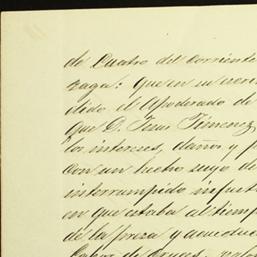 de Cuatro del corriente
zaga: Que en su veri
dido el Apoderado de
Que D. Jesus Jimenez
los intereses, daños y p
con un hecho suyo de
interrumpido injust
en que estaba al tiemp
de la preza y acueduc